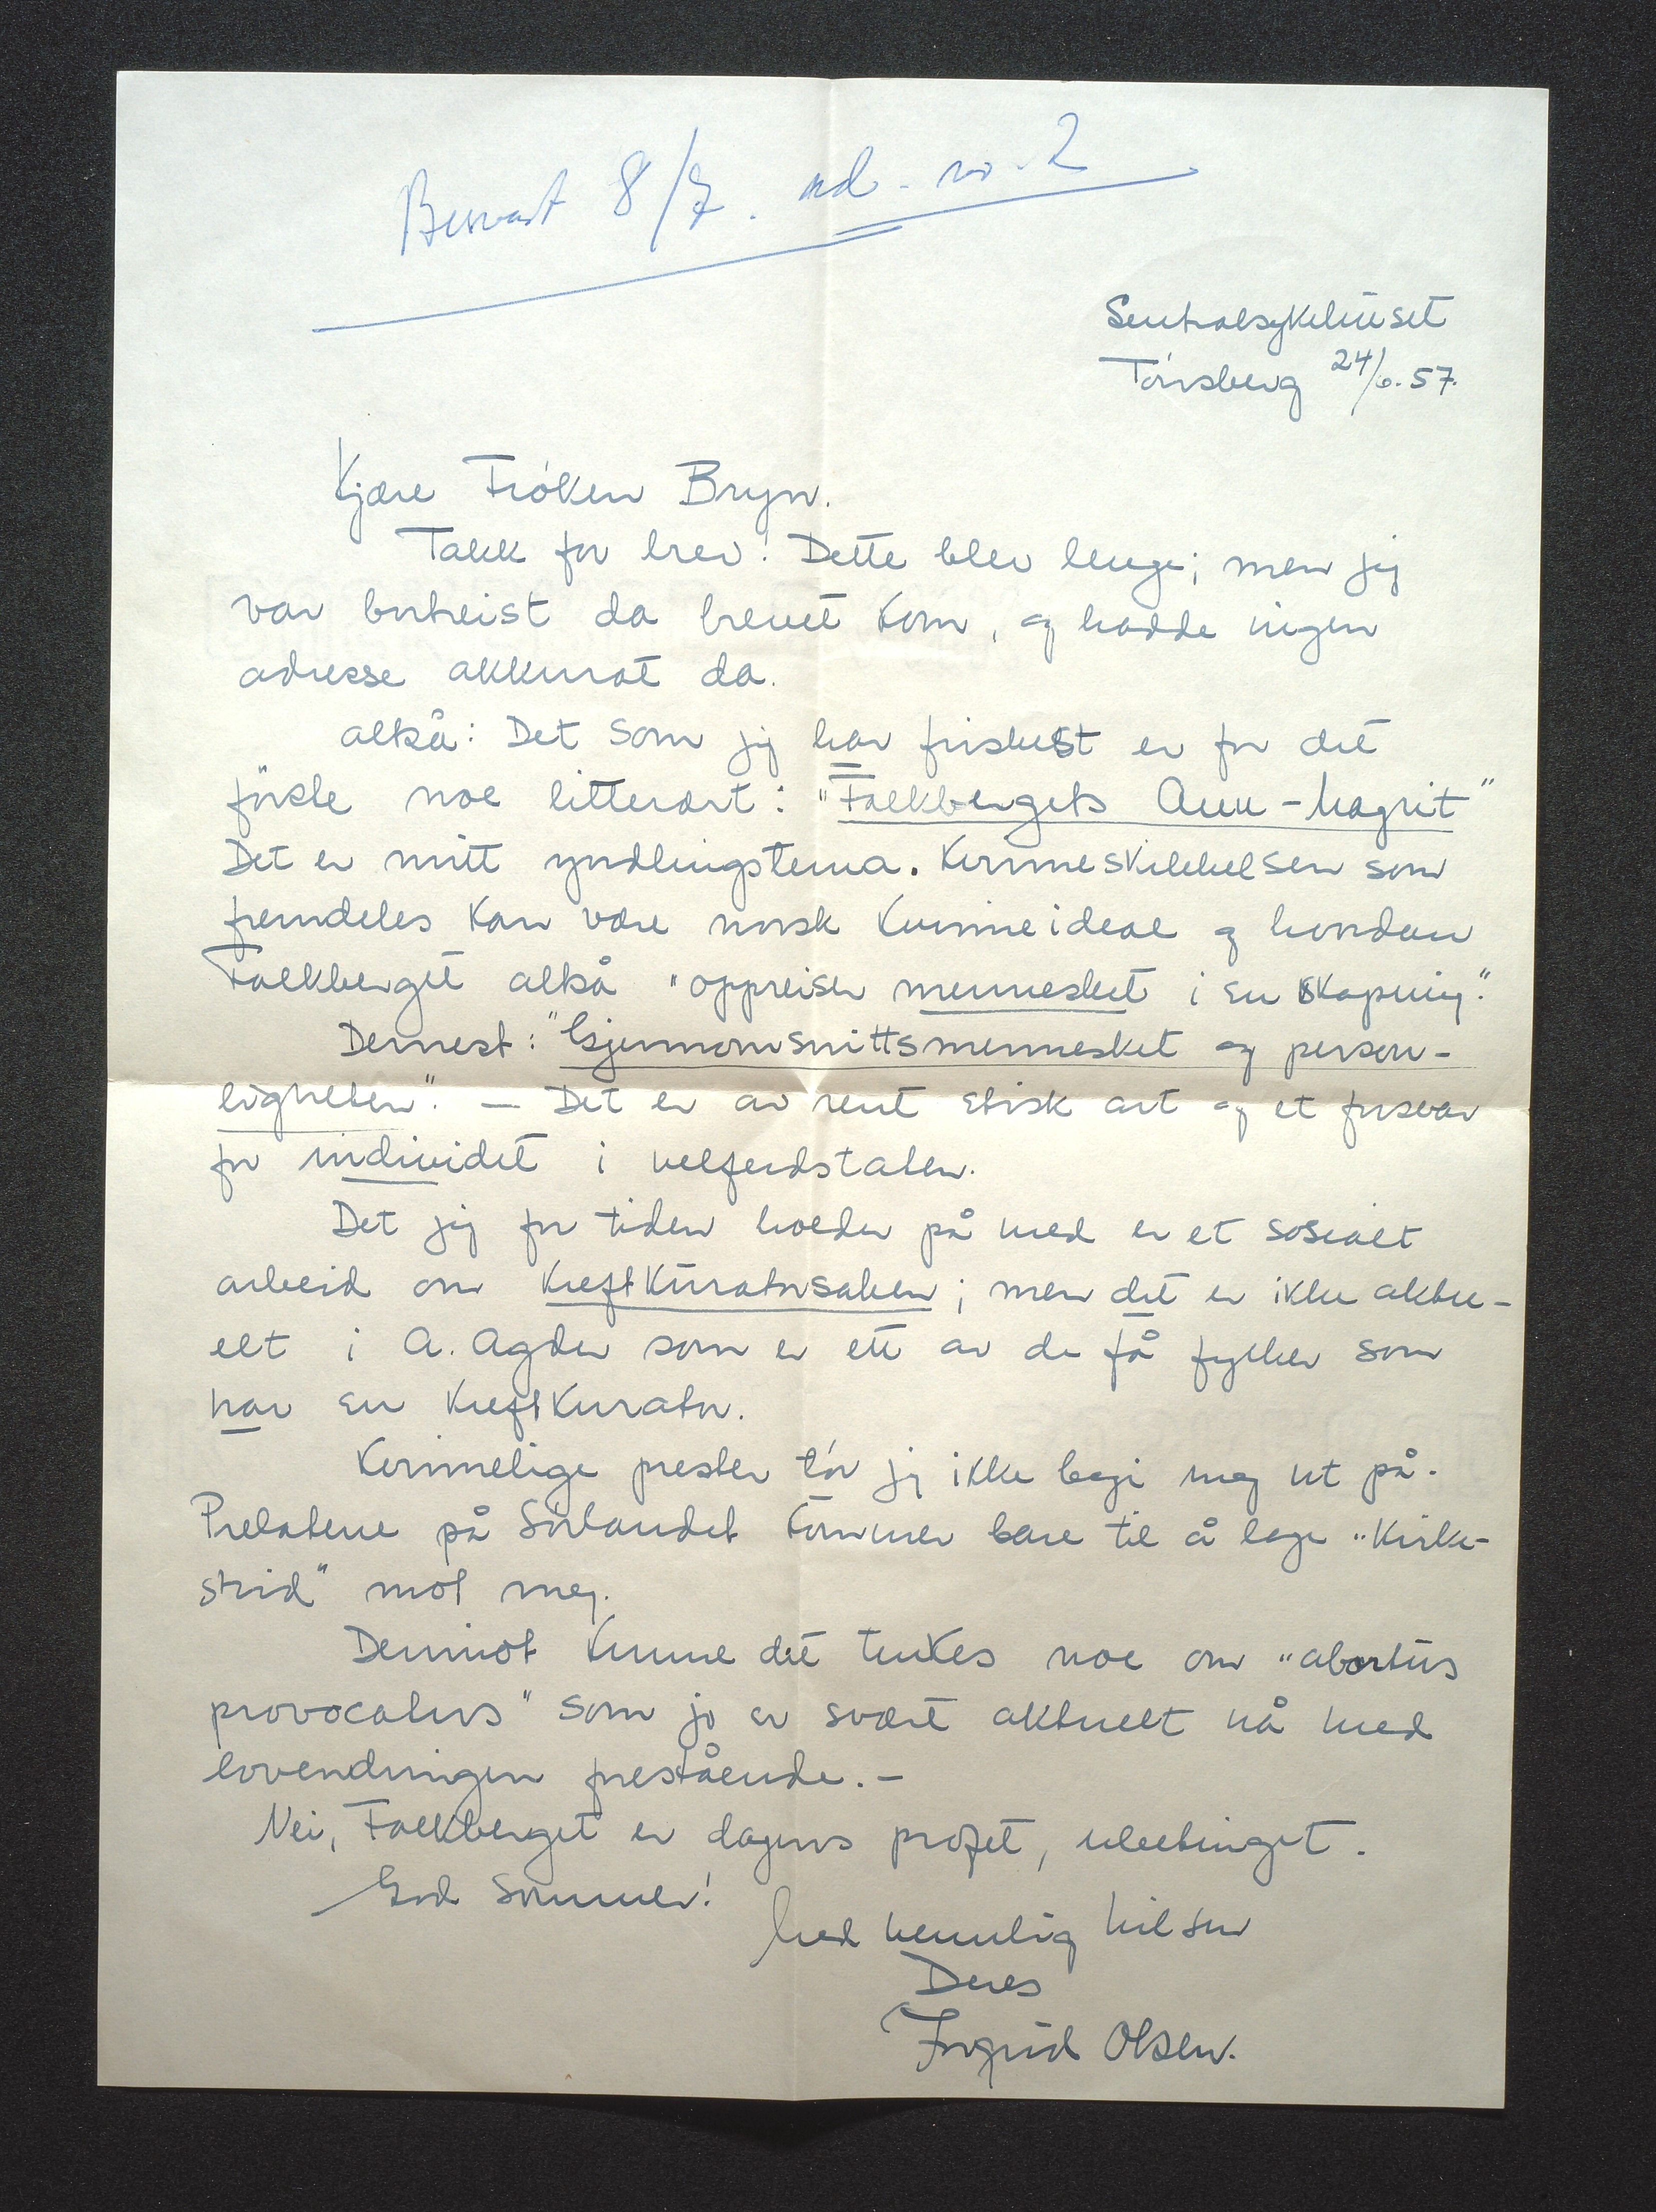 Besvart 8/7. ad. no. 2
Sentralsykehuset
Tönsberg 24/6. 57.
Kjære Fröken Bryn.
Takk for brev! Dette blev lenge; men jeg
var bortreist da brevet kom, og hadde ingen
adresse akkurat da.
altså: Det som jeg har friskest er for det
første noe litterært: "Falkbergets Ann-Magrit"
Det er mitt yndlingstema. Kvinneskikkelsen som
fremdeles kan være norsk kvinneideal og hvordan
Falkberget altså "oppreiser mennesket i en skapning."
Dernest: "Gjennomsnittsmennesket og person-
ligheten". — Det er av rent etisk art og et forsvar
for individet i velferdstaten.
Det jeg for tiden holder på med er et sosialt
arbeid om kreftkuratorsaken; men det er ikke aktu-
elt i A. Agder som er ett av de få fylker som
har en kreftkurator.
Kvinnelige prester tör jeg ikke begi meg ut på.
Prelatene på Sörlandet kommer bare til å lage "Kirke-
strid" mot meg.
Derimot kunne det tenkes noe om "abortus
provocatus" som jo er svært aktuelt nå med
lovendringen forestående. –
Nei, Falkberget er dagens profet, ubetinget.
God sommer!
Med vennlig hilsen
Deres
Ingrid Olsen.